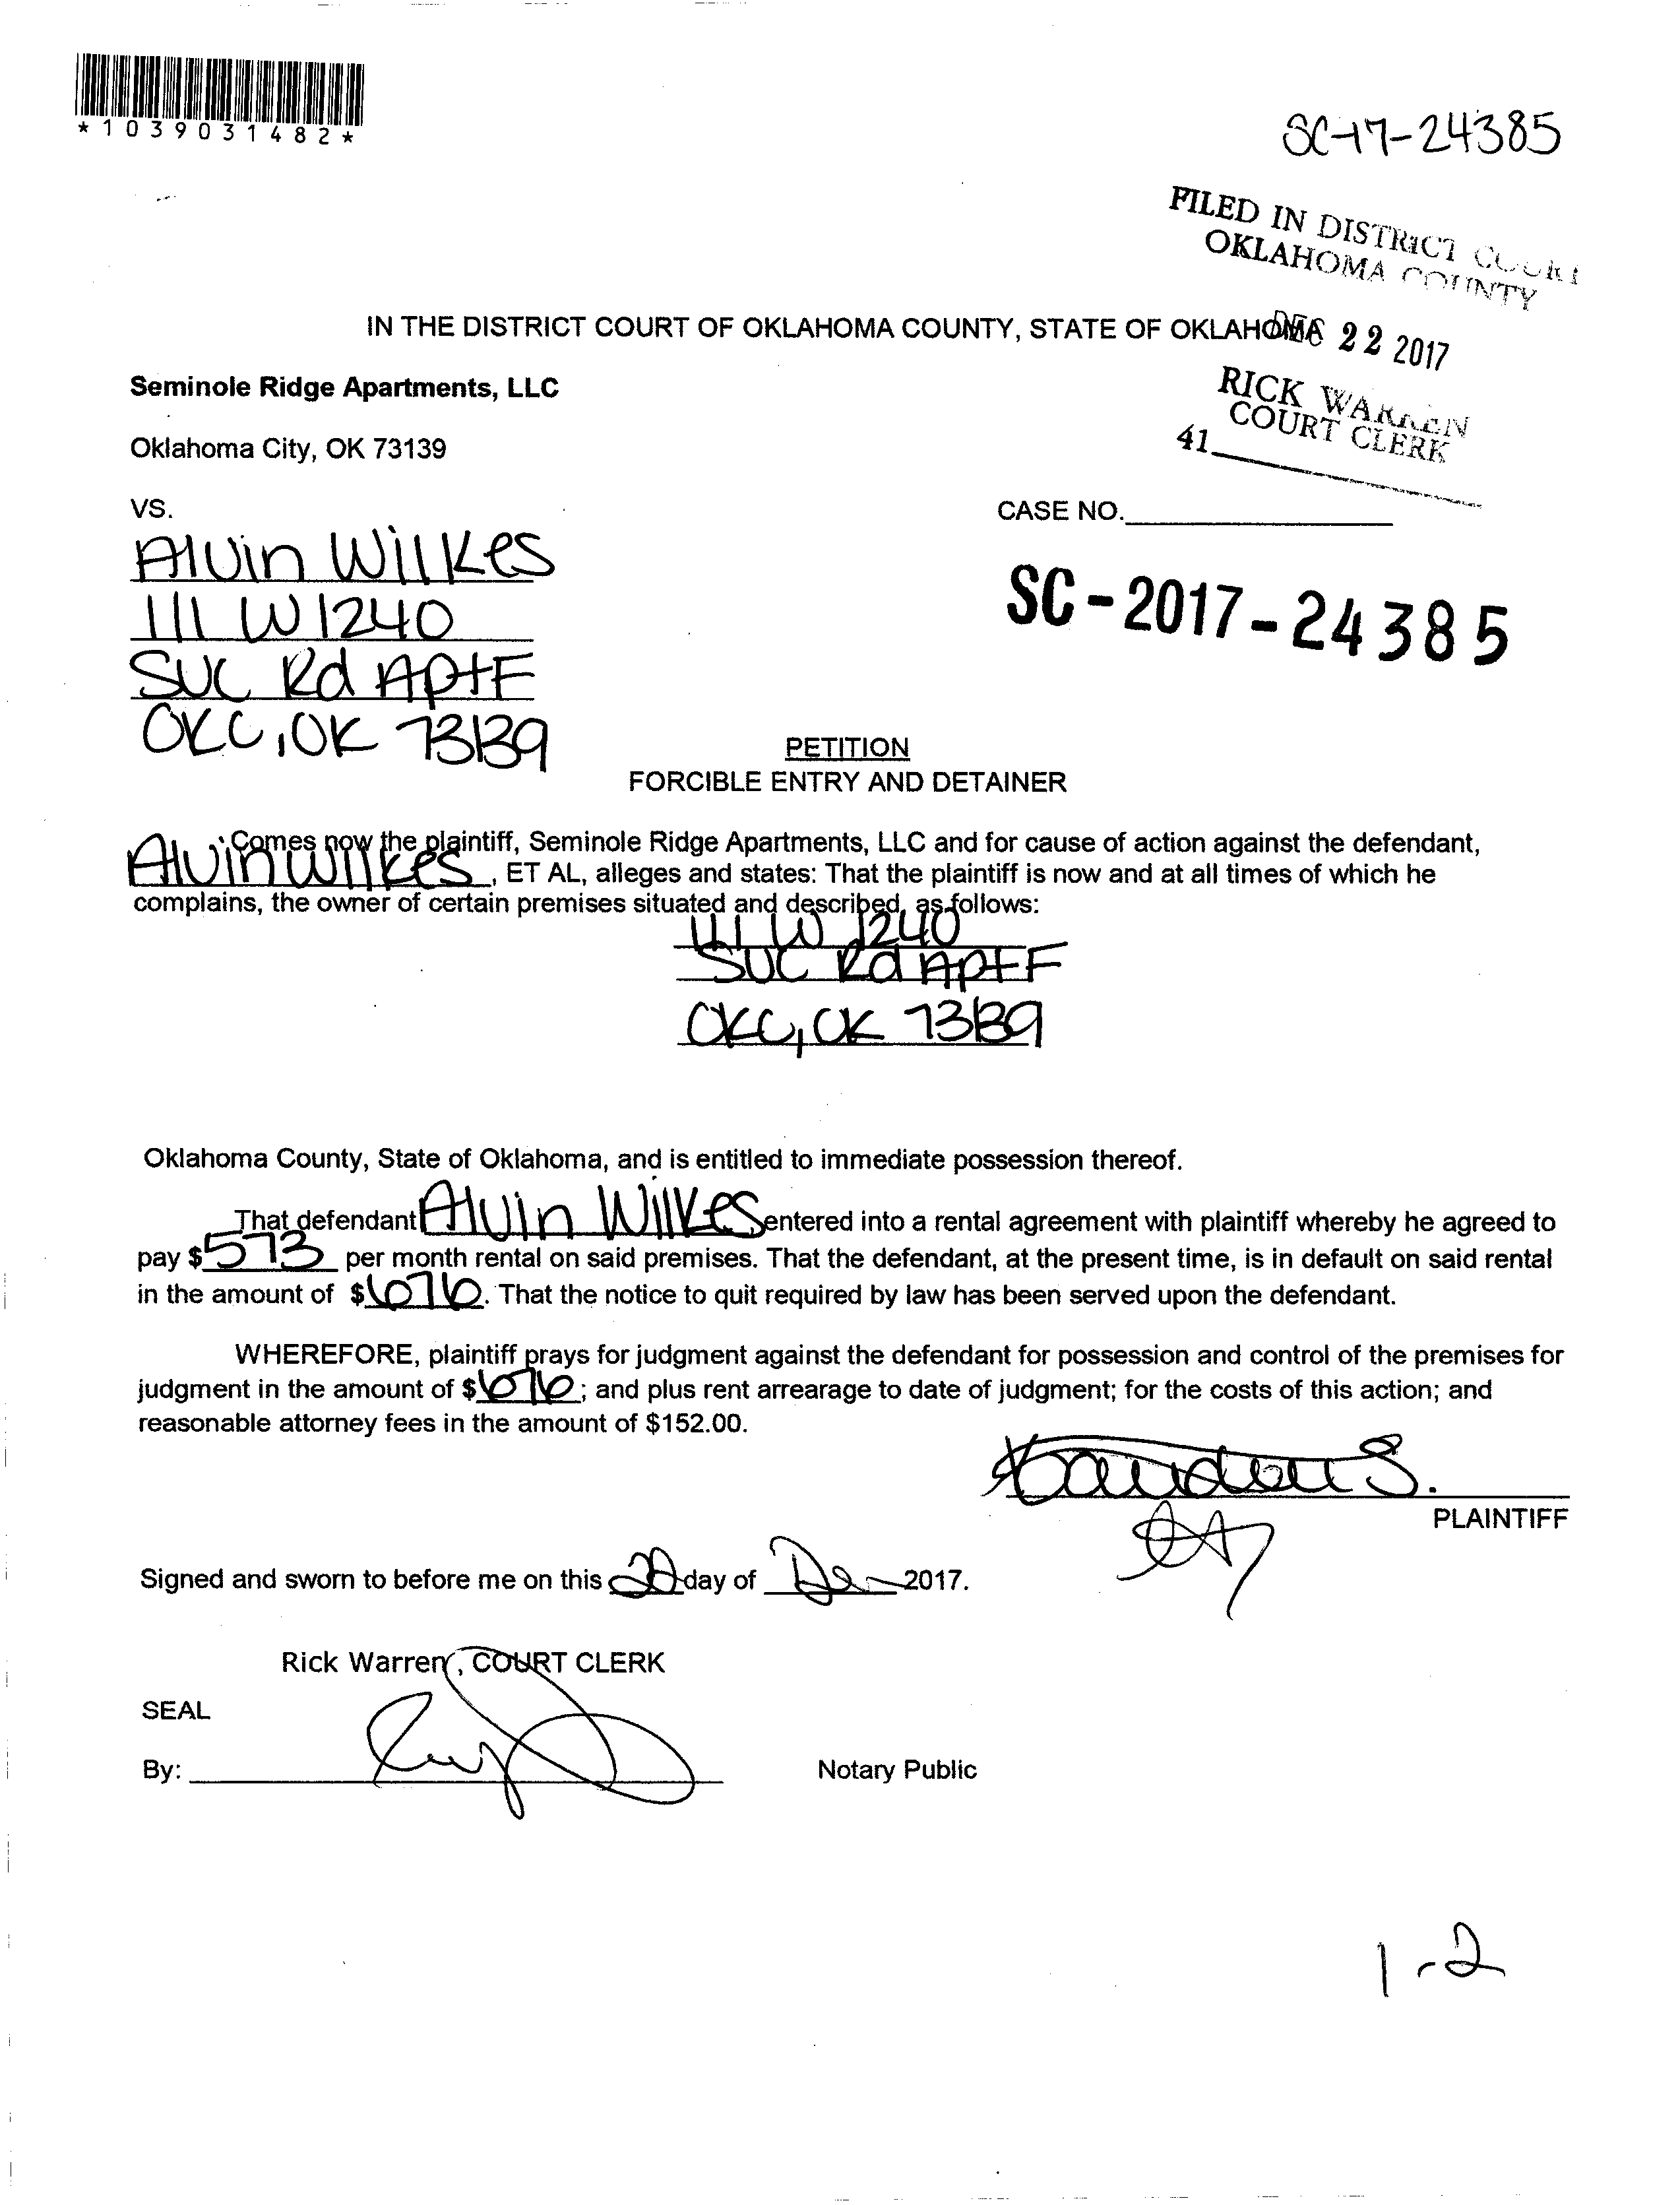 *1039031482*
SC-17-24385
FILED IN DISTRICT COURT
OKLAHOMA COUNTY
DEC 22 2017
RICK WARREN
COURT CLERK
41
IN THE DISTRICT COURT OF OKLAHOMA COUNTY, STATE OF OKLAHOMA
Seminole Ridge Apartments, LLC
Oklahoma City, OK 73139
VS.
CASE NO.
Alvin Wilkes
111 W 1240
SVC Rd Apt F
OKC, OK 73139
SC-2017-24385
PETITION
FORCIBLE ENTRY AND DETAINER
Comes now the plaintiff, Seminole Ridge Apartments, LLC and for cause of action against the defendant,
Alvin Wilkes, ET AL, alleges and states: That the plaintiff is now and at all times of which he
complains, the owner of certain premises situated and described, as follows:
111 W 1240
SVC Rd Apt F
OKC, OK 73139
Oklahoma County, State of Oklahoma, and is entitled to immediate possession thereof.
That defendant Alvin Wilkes entered into a rental agreement with plaintiff whereby he agreed to
pay $573 per month rental on said premises. That the defendant, at the present time, is in default on said rental
in the amount of $676. That the notice to quit required by law has been served upon the defendant.
WHEREFORE, plaintiff prays for judgment against the defendant for possession and control of the premises for
judgment in the amount of $676; and plus rent arrearage to date of judgment; for the costs of this action; and
reasonable attorney fees in the amount of $152.00.
PLAINTIFF
Signed and sworn to before me on this day of 2017.
Rick Warren, COURT CLERK
SEAL
By:
Notary Public
1-2